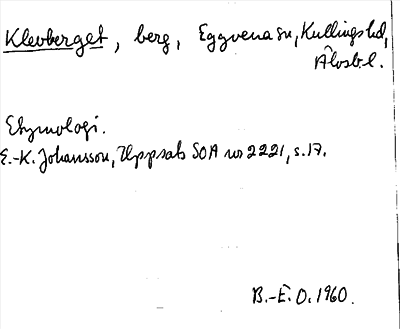 Klevberget, berg, Eggvena sn, Kullings hd,
Älvsb.l.
Etymologi.
E.-K. Johansson, Uppsats SOA nr 2221, s.17.
B.-E.O. 1960.